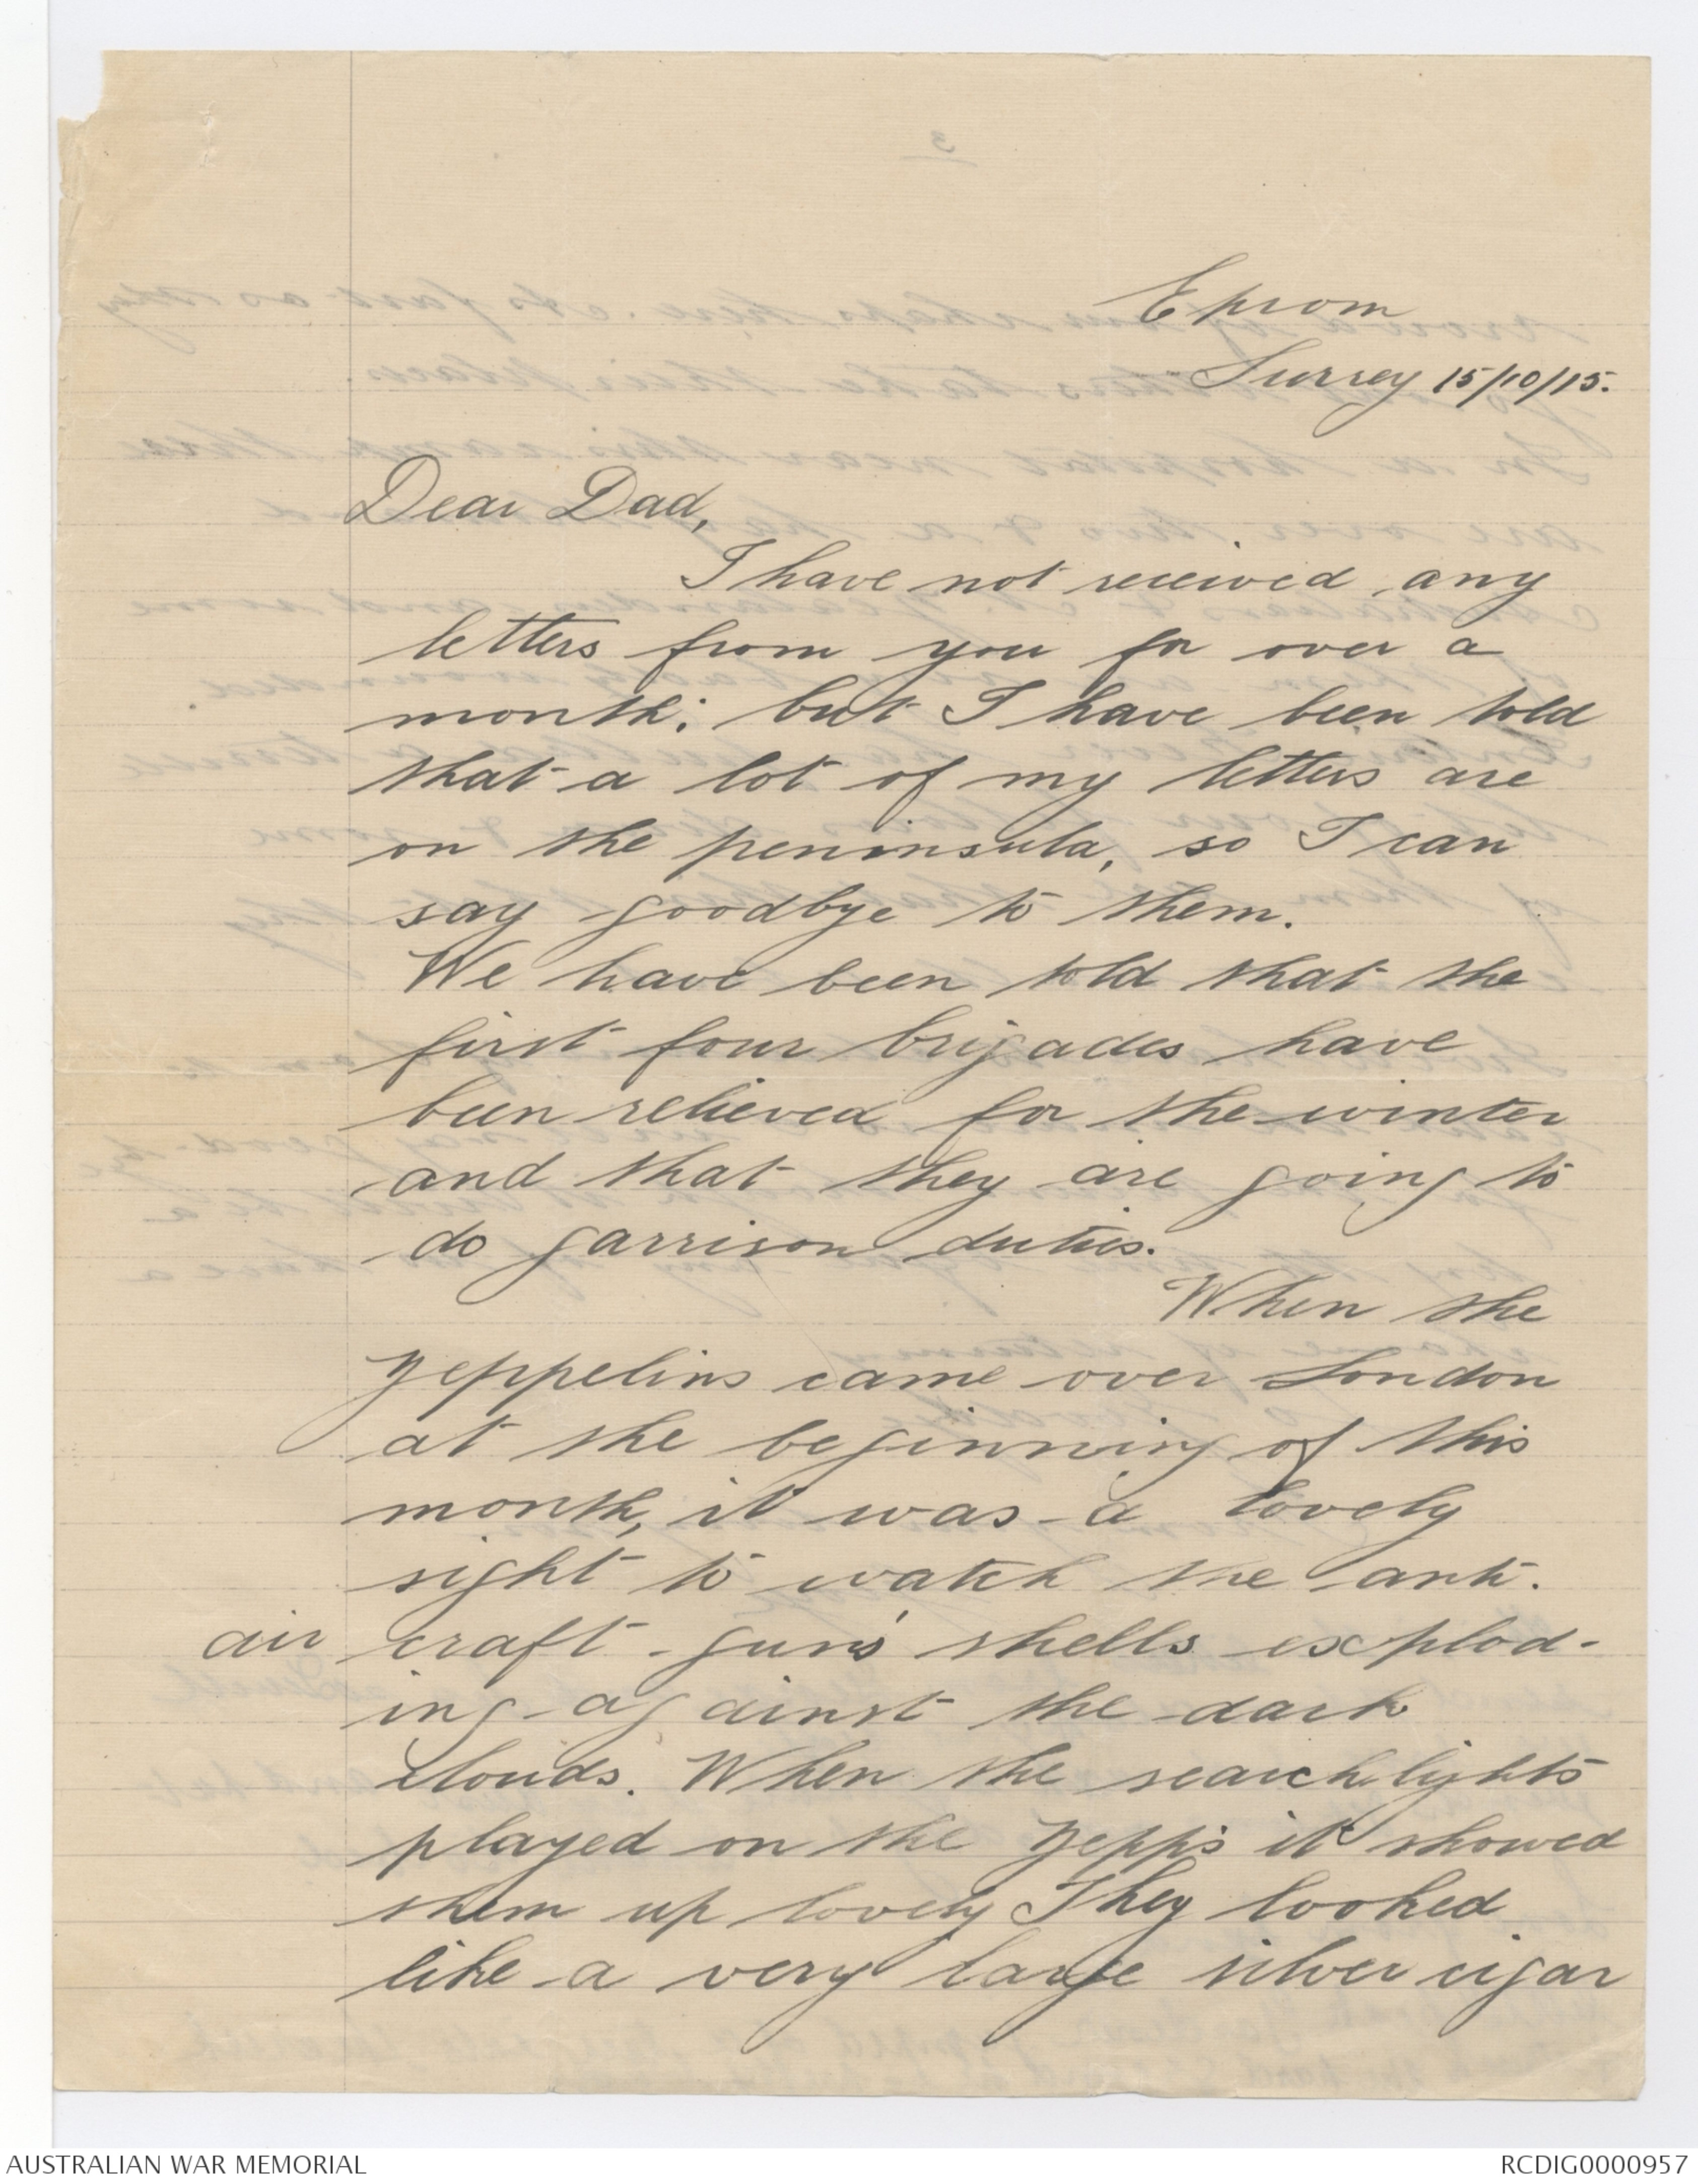 Epsom
Surrey 15/10/15.
Dear Dad,
I have not received any
letters from you for over a
month; but I have been told
that a lot of my letters are
on the peninsula, so I can
say goodbye to them.
We have been told that the
first four brigades have
been relieved for the winter
and that they are going to
do garrison duties.
When the
Zeppelins came over London
at the beginning of this
month, it was a lovely
sight to watch the anti-
air craft guns' shells explod-
ing against the dark
clouds. When the searchlights
played on the Zepps it showed
them up lovely They looked
like a very large silver cigar
AUSTRALIAN WAR MEMORIAL
RCDIG0000957